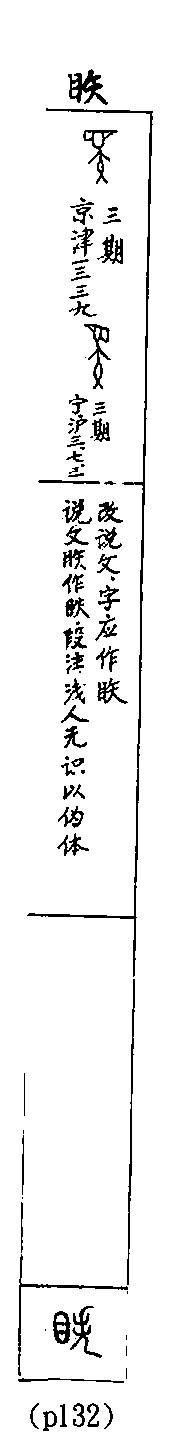 眣
京津一三三九
三期
宁沪三.七.二
三期
说文眣作眣.段注浅人无识以伪体
改说文、字应作眣
(p132)